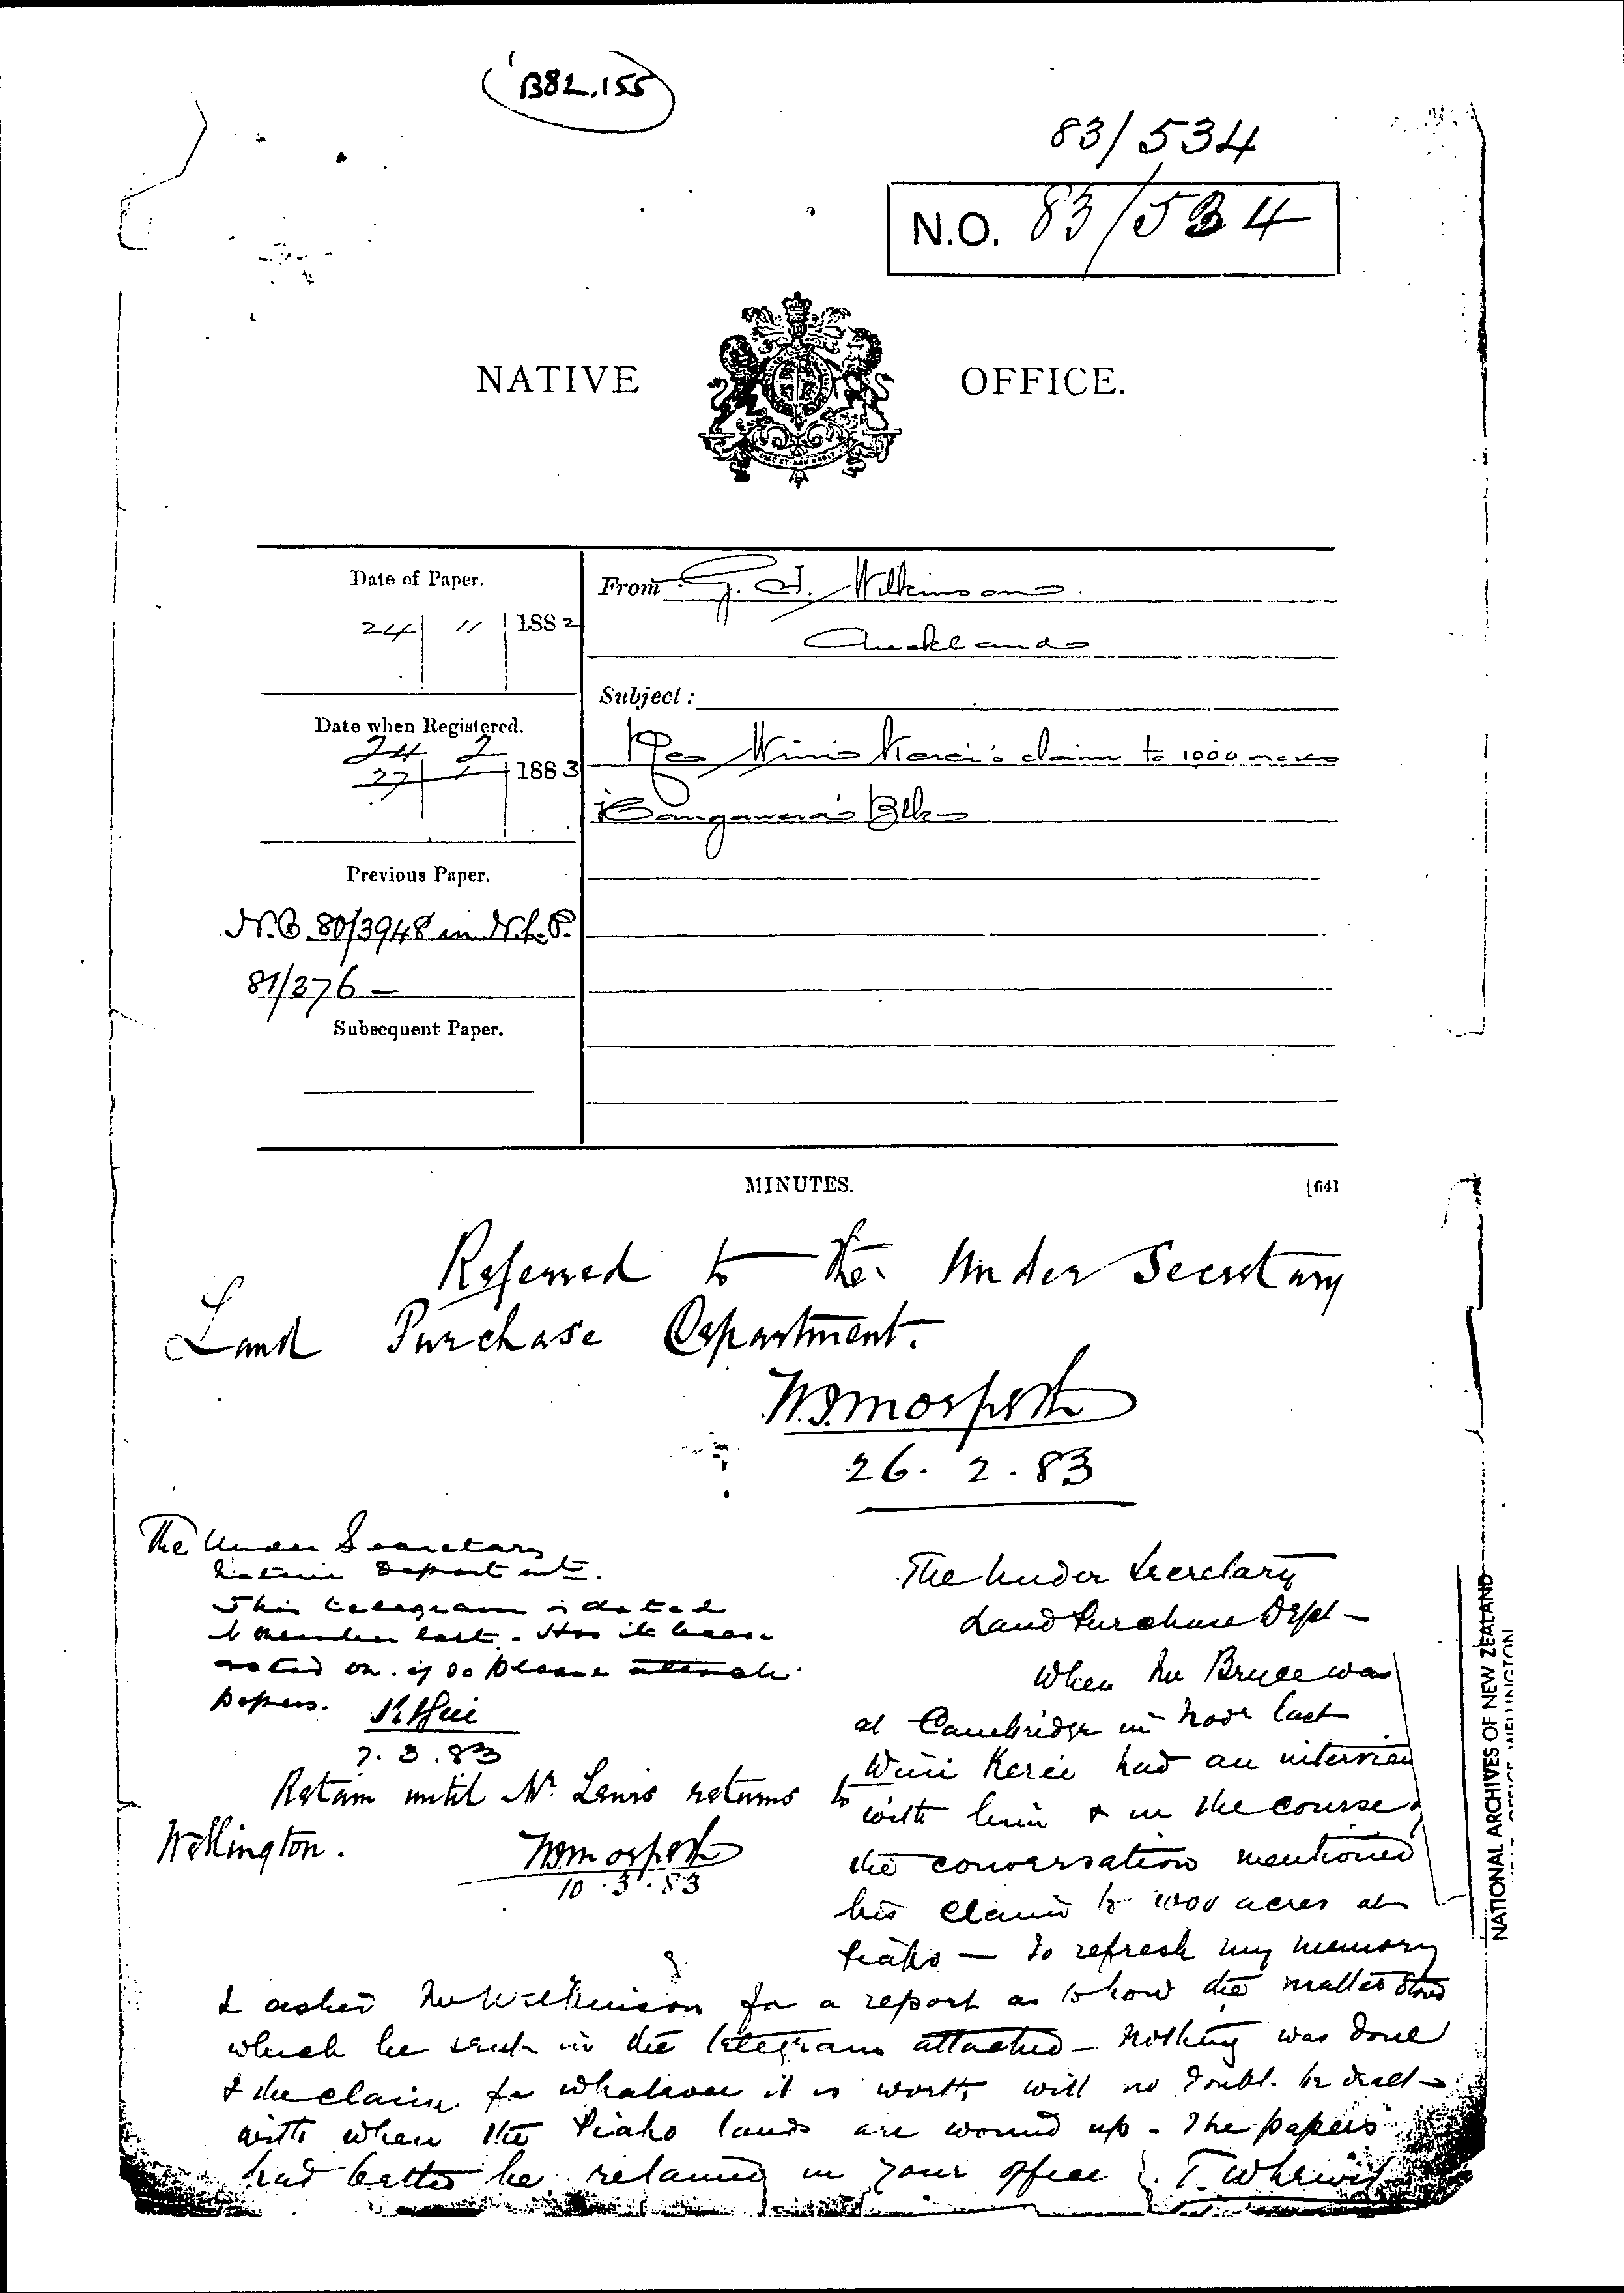 B82.155
83/534
N.O. 83/534
NATIVE OFFICE.
DIEU ET MON DROIT
Date of Paper.
24 11 1882
From G. T. Wilkinson.
Auckland
Subject:
Date when Registered.
24 2
27 1883
Re Wini Kerei's claim to 1000 acres
Block
Previous Paper.
N.O. 80/3948 in N.L.P.
81/376 –
Subsequent Paper.
MINUTES.
[64]
Referred to the Under Secretary
Land Purchase Department.
W.J. Morpeth
26. 2. 83
The Under Secretary
Native Department.
This telegram is dated
November last. Has it been
acted on. if so please attach
papers.
7. 3. 83
Retain until Mr Lewis returns to
Wellington.
WJMorpeth
10.3.83
The Under Secretary
Land Purchase Dept –
When Mr Bryce was
at Cambridge in Novr last
Wini Kerei had an interview
with him & in the course of
the conversation mentioned
his claim to 1000 acres at
Piako — To refresh my memory
I asked Mr Wilkinson for a report as to how the matter stood
which he sent in the telegram attached – Nothing was done
& the claim for whatever it is worth will no doubt be dealt
with when the Piako lands are wound up – The papers
had better be retained in your office. T. W. Lewis
NATIONAL ARCHIVES OF NEW ZEALAND
HEAD OFFICE, WELLINGTON